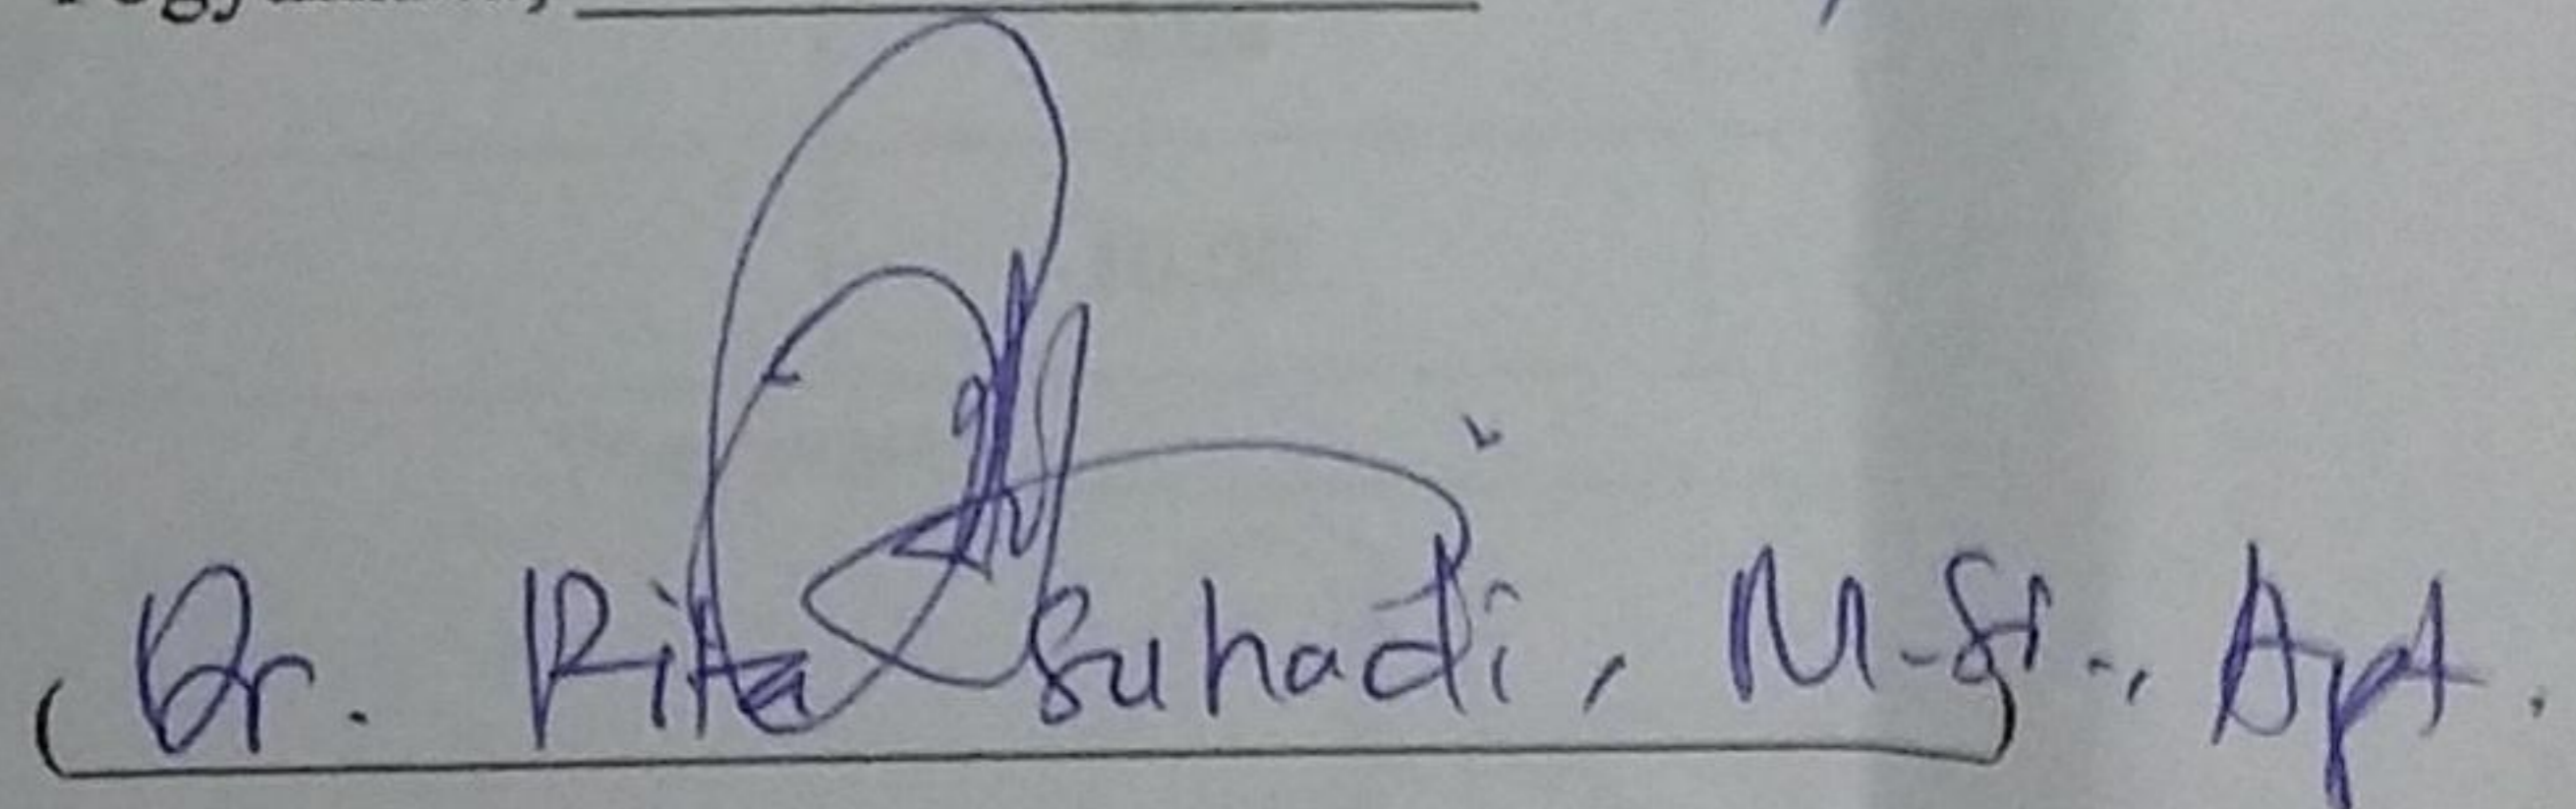 (Dr. Rita Suhadi, M.Si., Apt.)